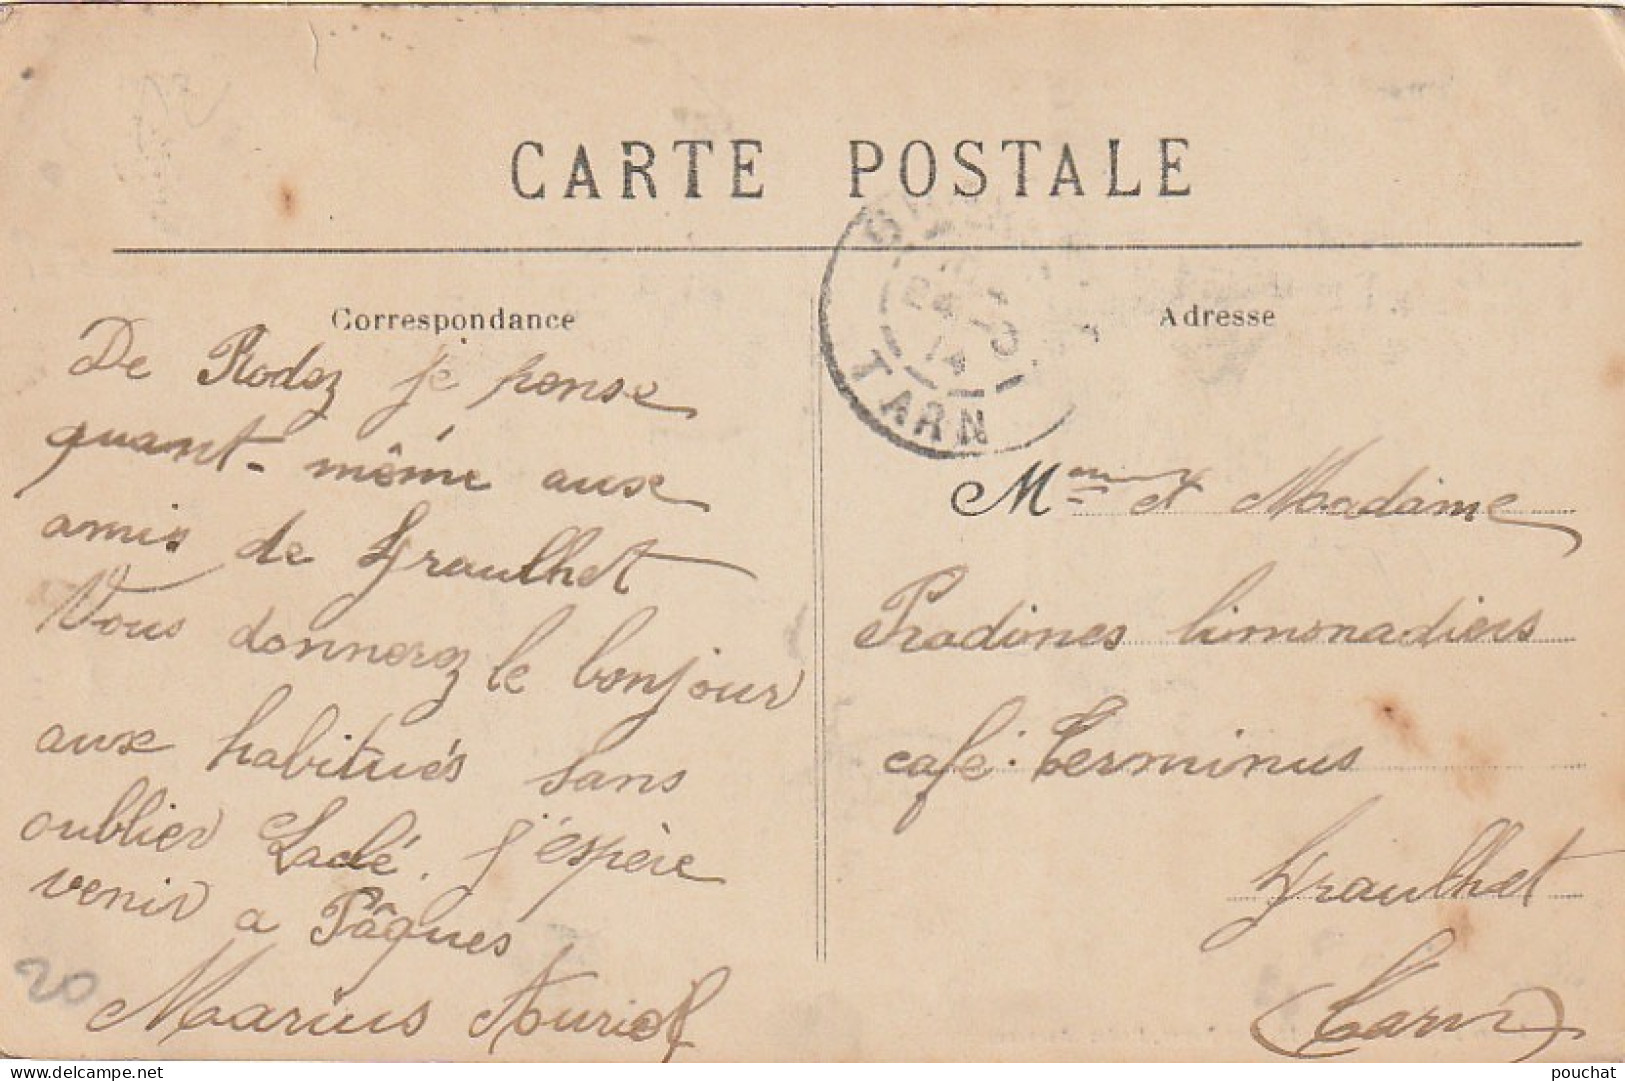 CARTE POSTALE
Correspondance
De Rodez je pense
quant-même aux
amis de Graulhet
Vous donnerez le bonjour
aux habitués sans
oublier Laclé. J'espère
venir a Pâques
Marius
20
24
14
TARN
Adresse
et Madame
Pradines limonadiers
café Terminus
Graulhet
(Tarn)
www.delcampe.net
pouchat